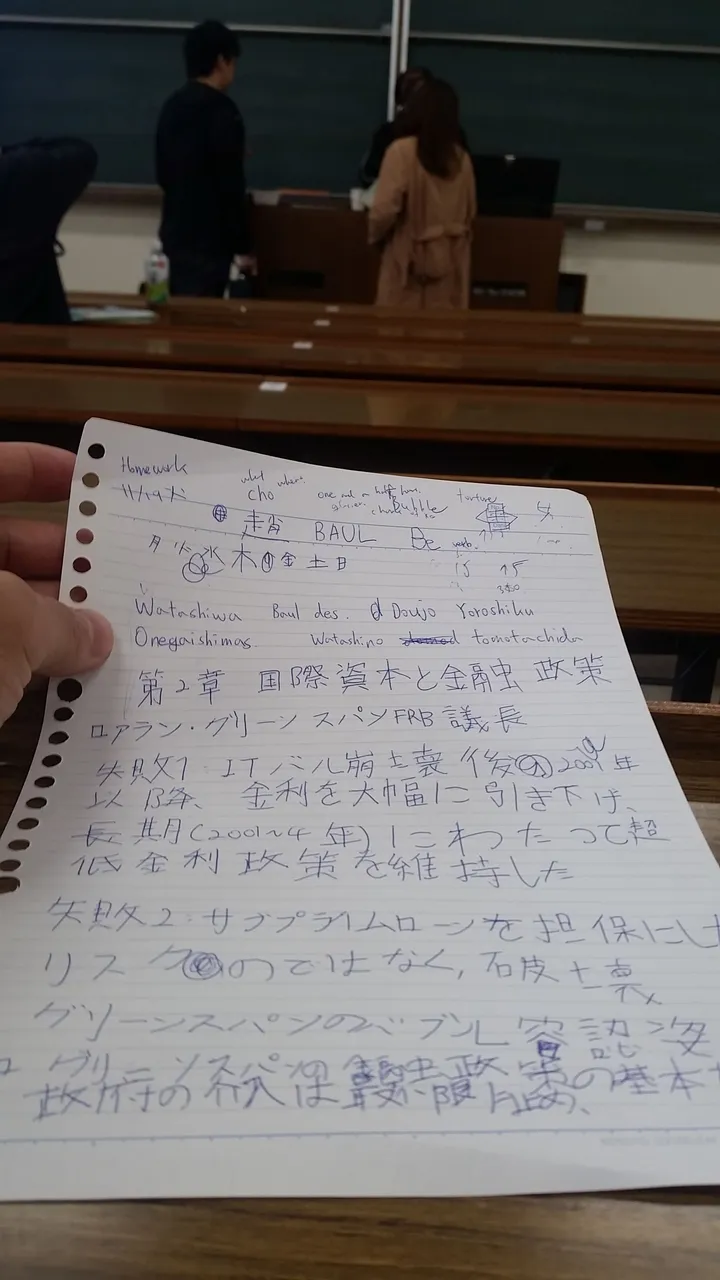 Homework
what where
11/19火 cho one and a half hour Bubble torture
趙 BAUL Be verb.
月 火 水 木 金 土 日 15 15
350
Watashiwa Baul des. Doujo Yoroshiku
Onegaishimas. Watashino tomotachida
第2章 国際資本と金融政策
アラン・グリーンスパンFRB議長
失敗1 ITバル崩壊後 2001年
以降、金利を大幅に引き下げ、
長期(2001~4年)にわたって超
低金利政策を維持した
失敗2:サブプライムローンを担保にし
リスク のではなく,破壊、
グリーンスパンのバブル容認姿
グリーンスパンは金融政策の基本
政府の介入は最小限